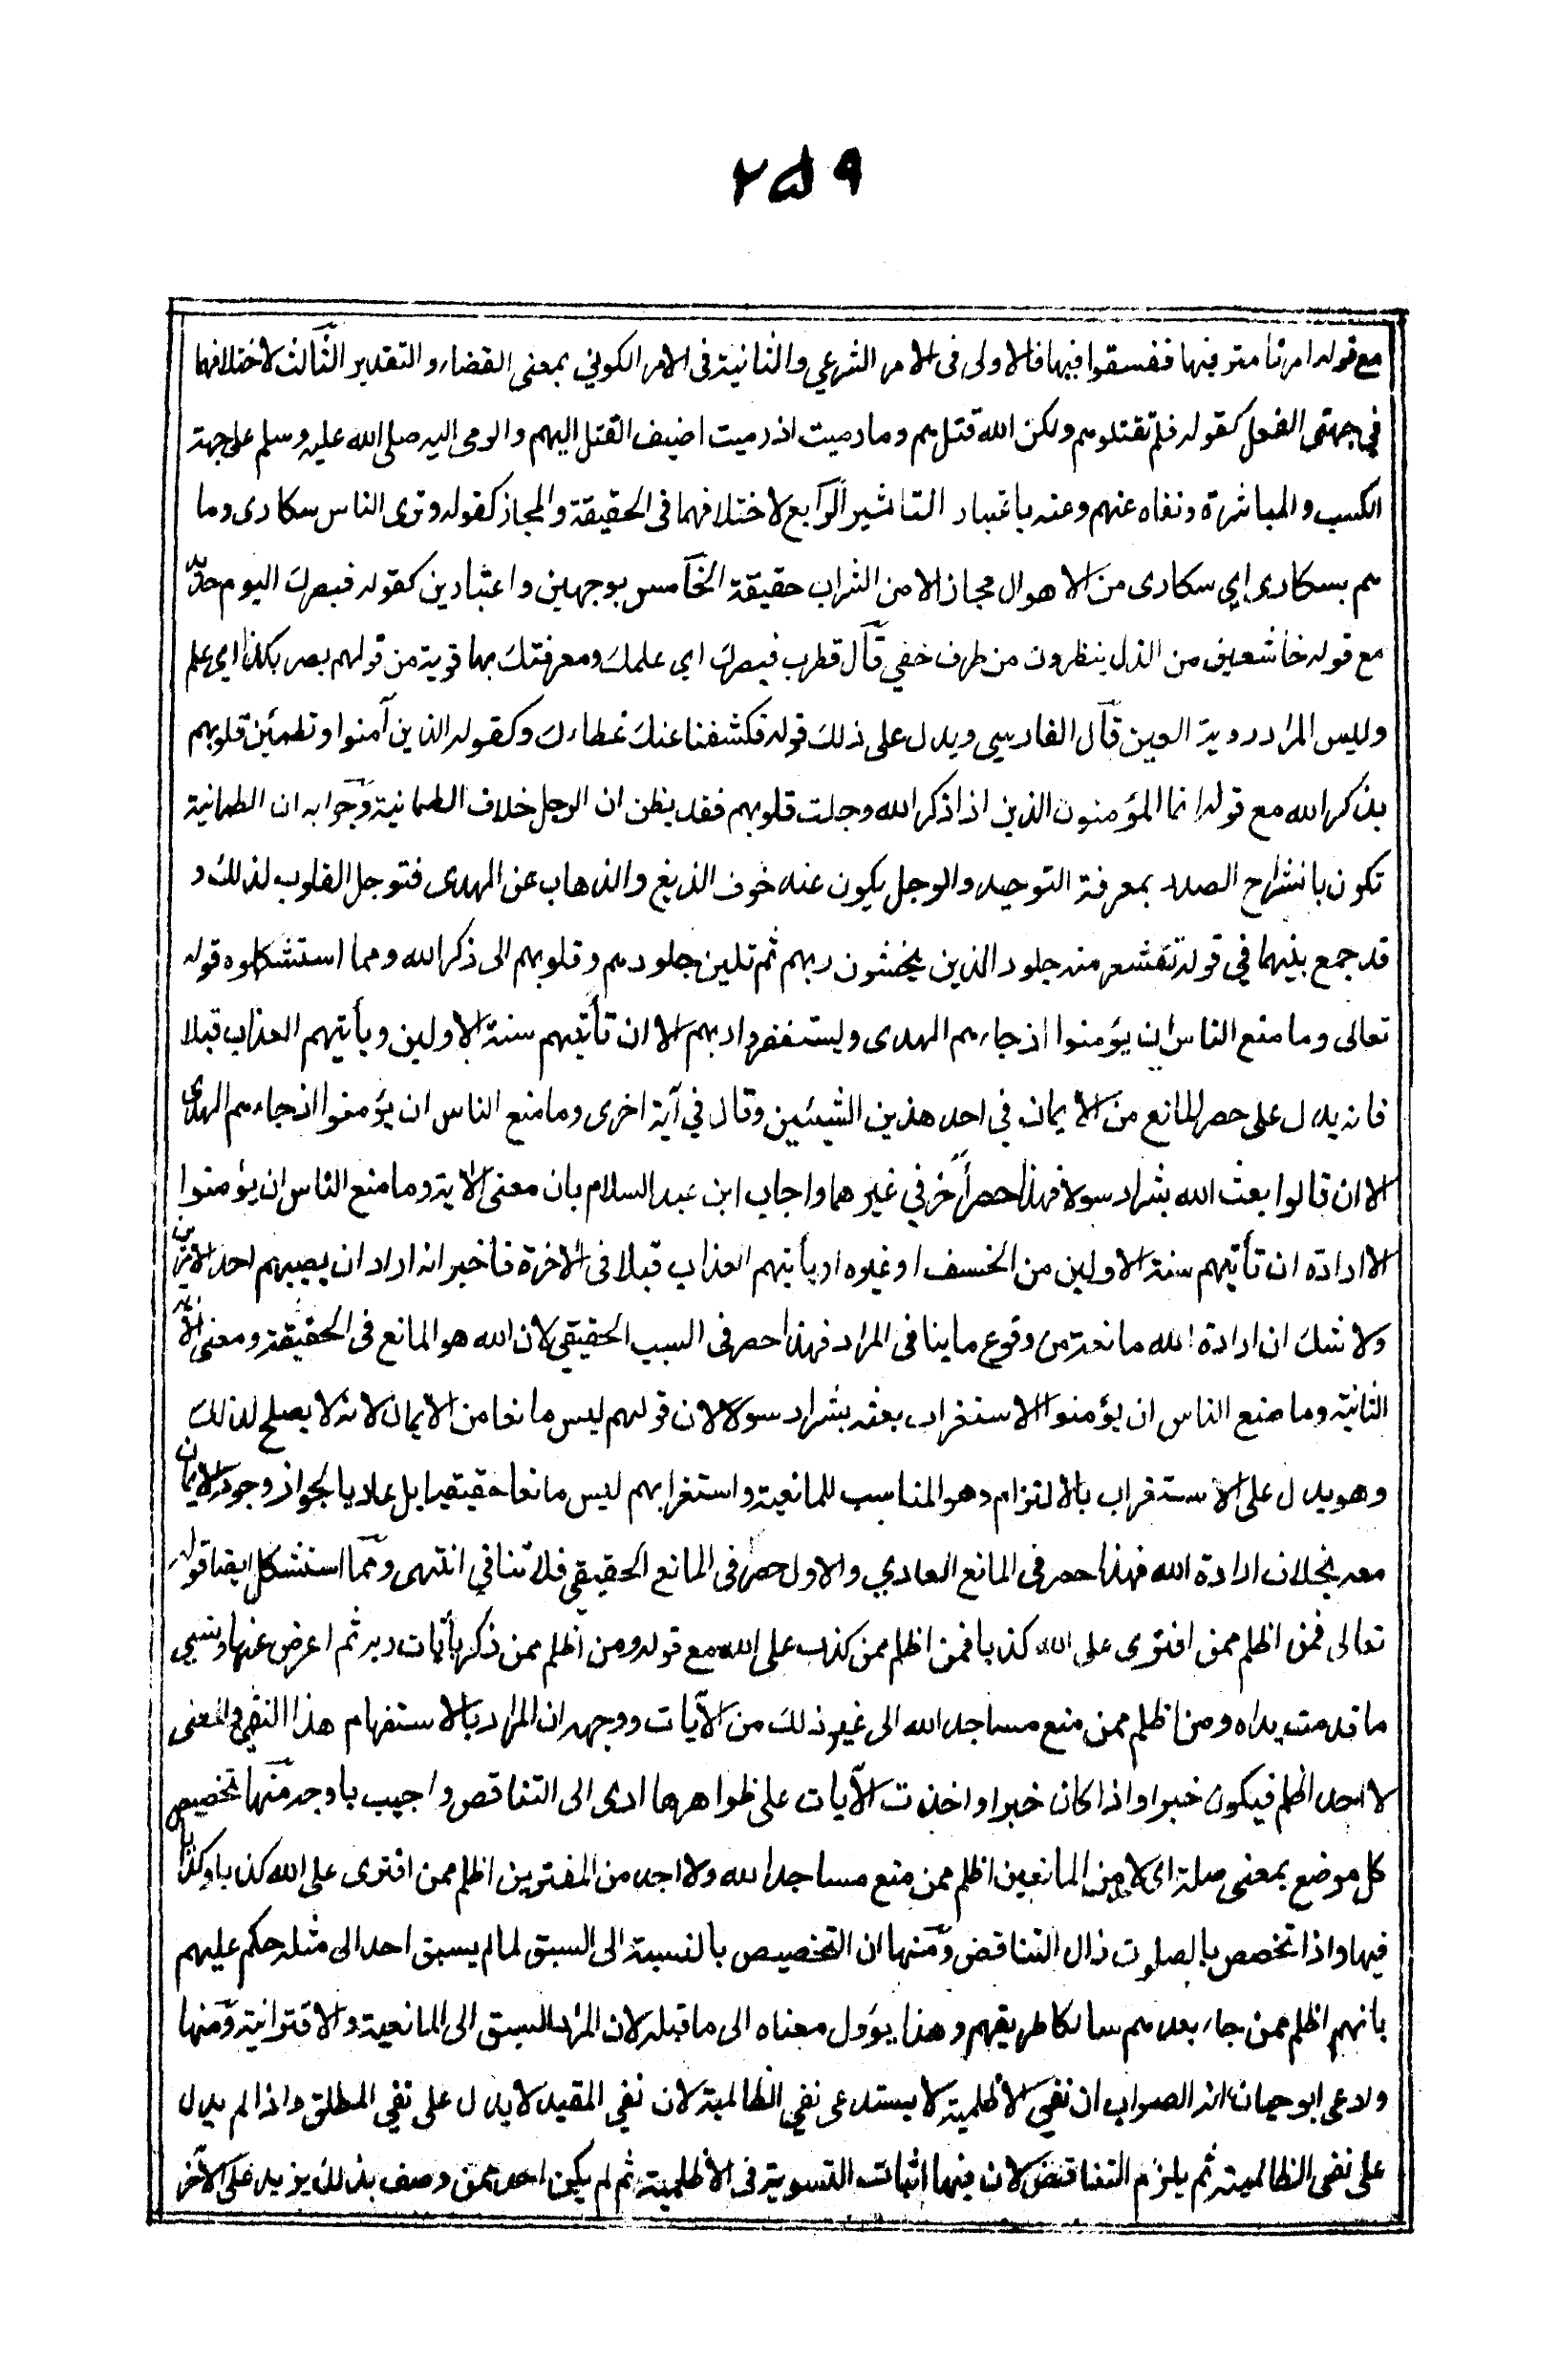 ٢٥٩
مع قوله امرنا مترفيها ففسقوا فيها فالاولى فى الامر الشرعي والثانية فى الامر الكوني بمعنى القضاء والتقدير الثالث لاختلافهما
في جهتى الفعل كقوله فلم تقتلوهم ولكن الله قتلهم وما رميت اذ رميت اضيف القتل اليهم والرمى اليه صلى الله عليه وسلم على جهة
الكسب والمباشرة ونفاه عنهم وعنه باعتبار التاثير الرابع لاختلافهما فى الحقيقة والمجاز كقوله وترى الناس سكارى وما
هم بسكارى اي سكارى من الاهوال مجازا لا من الشراب حقيقة الخامس بوجهين واعتبارين كقوله فبصرك اليوم حديد
مع قوله خاشعين من الذل ينظرون من طرف خفي قال قطرب فبصرك اي علمك ومعرفتك بها قوية من قولهم بصر بكذا اي علم
وليس المراد روية العين قال الفارسي ويدل على ذلك قوله فكشفنا عنك غطاءك وكقوله الذين آمنوا وتطمئن قلوبهم
بذكر الله مع قوله انما المؤمنون الذين اذا ذكر الله وجلت قلوبهم فقد يظن ان الوجل خلاف الطمانية وجوابه ان الطمانية
تكون بانشراح الصدر بمعرفة التوحيد والوجل يكون عند خوف الزيغ والذهاب عن الهدى فتوجل القلوب لذلك و
قد جمع بينهما في قوله تقشعر منه جلود الذين يخشون ربهم ثم تلين جلودهم وقلوبهم الى ذكر الله ومما استشكلوه قوله
تعالى وما منع الناس ان يؤمنوا اذ جاءهم الهدى ويستغفروا ربهم الا ان تأتيهم سنة الاولين ويأتيهم العذاب قبلا
فانه يدل على حصر المانع من الايمان في احد هذين الشيئين وقال في آية اخرى وما منع الناس ان يؤمنوا اذ جاءهم الهدى
الا ان قالوا بعث الله بشرا رسولا فهذا حصر آخر في غيرهما واجاب ابن عبد السلام بان معنى الاية وما منع الناس ان يؤمنوا
الا ارادة ان تأتيهم سنة الاولين من الخسف او غيره او يأتيهم العذاب قبلا فى الاخرة فاخبر انه اراد ان يصيبهم احد الامرين
ولا شك ان ارادة الله مانعة من وقوع ما ينافى المراد فهذا حصر فى السبب الحقيقي لان الله هو المانع فى الحقيقة ومعنى الآية
الثانية وما منع الناس ان يؤمنوا الا استغراب بعثه بشرا رسولا لان قولهم ليس مانعا من الايمان لانه لا يصلح لذلك
وهو يدل على الاستغراب بالالتزام وهو المناسب للمانعية واستغرابهم ليس مانعا حقيقيا بل عاديا لجواز وجود الايمان
معه بخلاف ارادة الله فهذا حصر فى المانع العادي والاول حصر فى المانع الحقيقي فلا تنافي انتهى ومما استشكل ايضا قوله
تعالى فمن اظلم ممن افترى على الله كذبا فمن اظلم ممن كذب على الله مع قوله ومن اظلم ممن ذكر بآيات ربه ثم اعرض عنها ونسي
ما قدمت يداه ومن اظلم ممن منع مساجد الله الى غير ذلك من الآيات ووجهه ان المراد بالاستفهام هذا النفي والمعنى
لا احد اظلم فيكون خبرا واذا كان خبرا واخذت الآيات على ظواهرها ادى الى التناقض واجيب باوجه منها تخصيص
كل موضع بمعنى صلته اى لا من المانعين اظلم ممن منع مساجد الله ولا احد من المفترين اظلم ممن افترى على الله كذبا وكذا باقى
فيها واذا تخصص بالصلوت زال التناقض ومنها ان التخصيص بالنسبة الى السبق لما لم يسبق احد الى مثله حكم عليهم
بانهم اظلم ممن جاء بعدهم سالكا طريقهم وهذا يؤول معناه الى ما قبله لان المراد السبق الى المانعية والافترائية ومنها
وادعى ابو حيان انه الصواب ان نفي الاظلمية لا يستدعى نفي الظالمية لان نفي المقيد لا يدل على نفي المطلق واذا لم يدل
على نفى الظالمية ثم يلزم التناقض لان فيها اثبات التسوية فى الاظلمية ثم لم يكن احد ممن وصف بذلك يزيد على الآخر